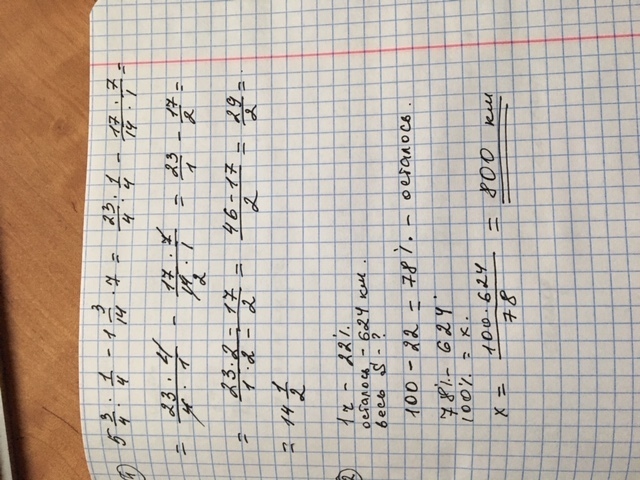 1) 5 3/4 : 1/4 - 1 3/14 · 7 = 23/4 : 1/4 - 17/14 · 7/1 =
= 23 · 4 / 4 · 1 - 17 · 7 / 14 2 · 1 = 23/1 - 17/2 =
= 23 · 2 - 17 / 1 · 2 - 2 = 46 - 17 / 2 = 29/2 =
= 14 1/2
2
1ч - 22%.
осталось - 624 км.
весь S - ?
100 - 22 = 78% - осталось.
78% - 624.
100% = x.
x = 100 · 624 / 78 = 800 км